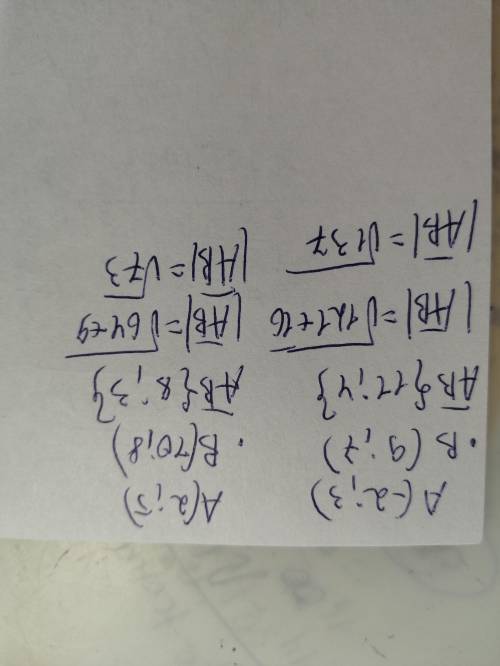 A(-2;3)
· B(9;7)
A̅B̅{11;4}
|A̅B̅|=√121+16
|A̅B̅|=√137
A(2;5)
· B(10;8)
A̅B̅{8;3}
|A̅B̅|=√64+9
|A̅B̅|=√73